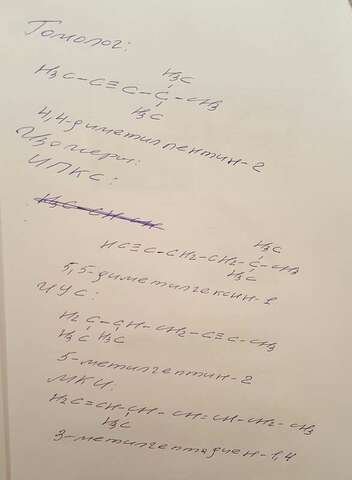 Гомолог:
H₃C
H₃C-C≡C-C-CH₃
H₃C
4,4-диметилпентин-2
Изомеры:
ИПКС:
H₃C-CH-CH
H₃C
HC≡C-CH₂-CH₂-C-CH₃
H₃C
5,5-диметилгексин-1
ИУС:
H₂C-CH-CH₂-C≡C-CH₃
H₃C H₃C
5-метилгептин-2
МКИ:
H₂C=CH-CH-CH=CH-CH₂-CH₃
H₃C
3-метилгептадиен-1,4